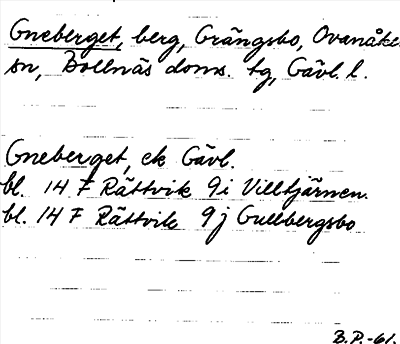 Gneberget, berg, Grängsbo, Ovanåke
sn, Bollnäs doms. tg, Gävl. l.
Gneberget, ek Gävl.
bl. 14 F Rättvik 9i Villtjärnen.
bl. 14 F Rättvik 9j Gullbergsbo
B.P.-61.